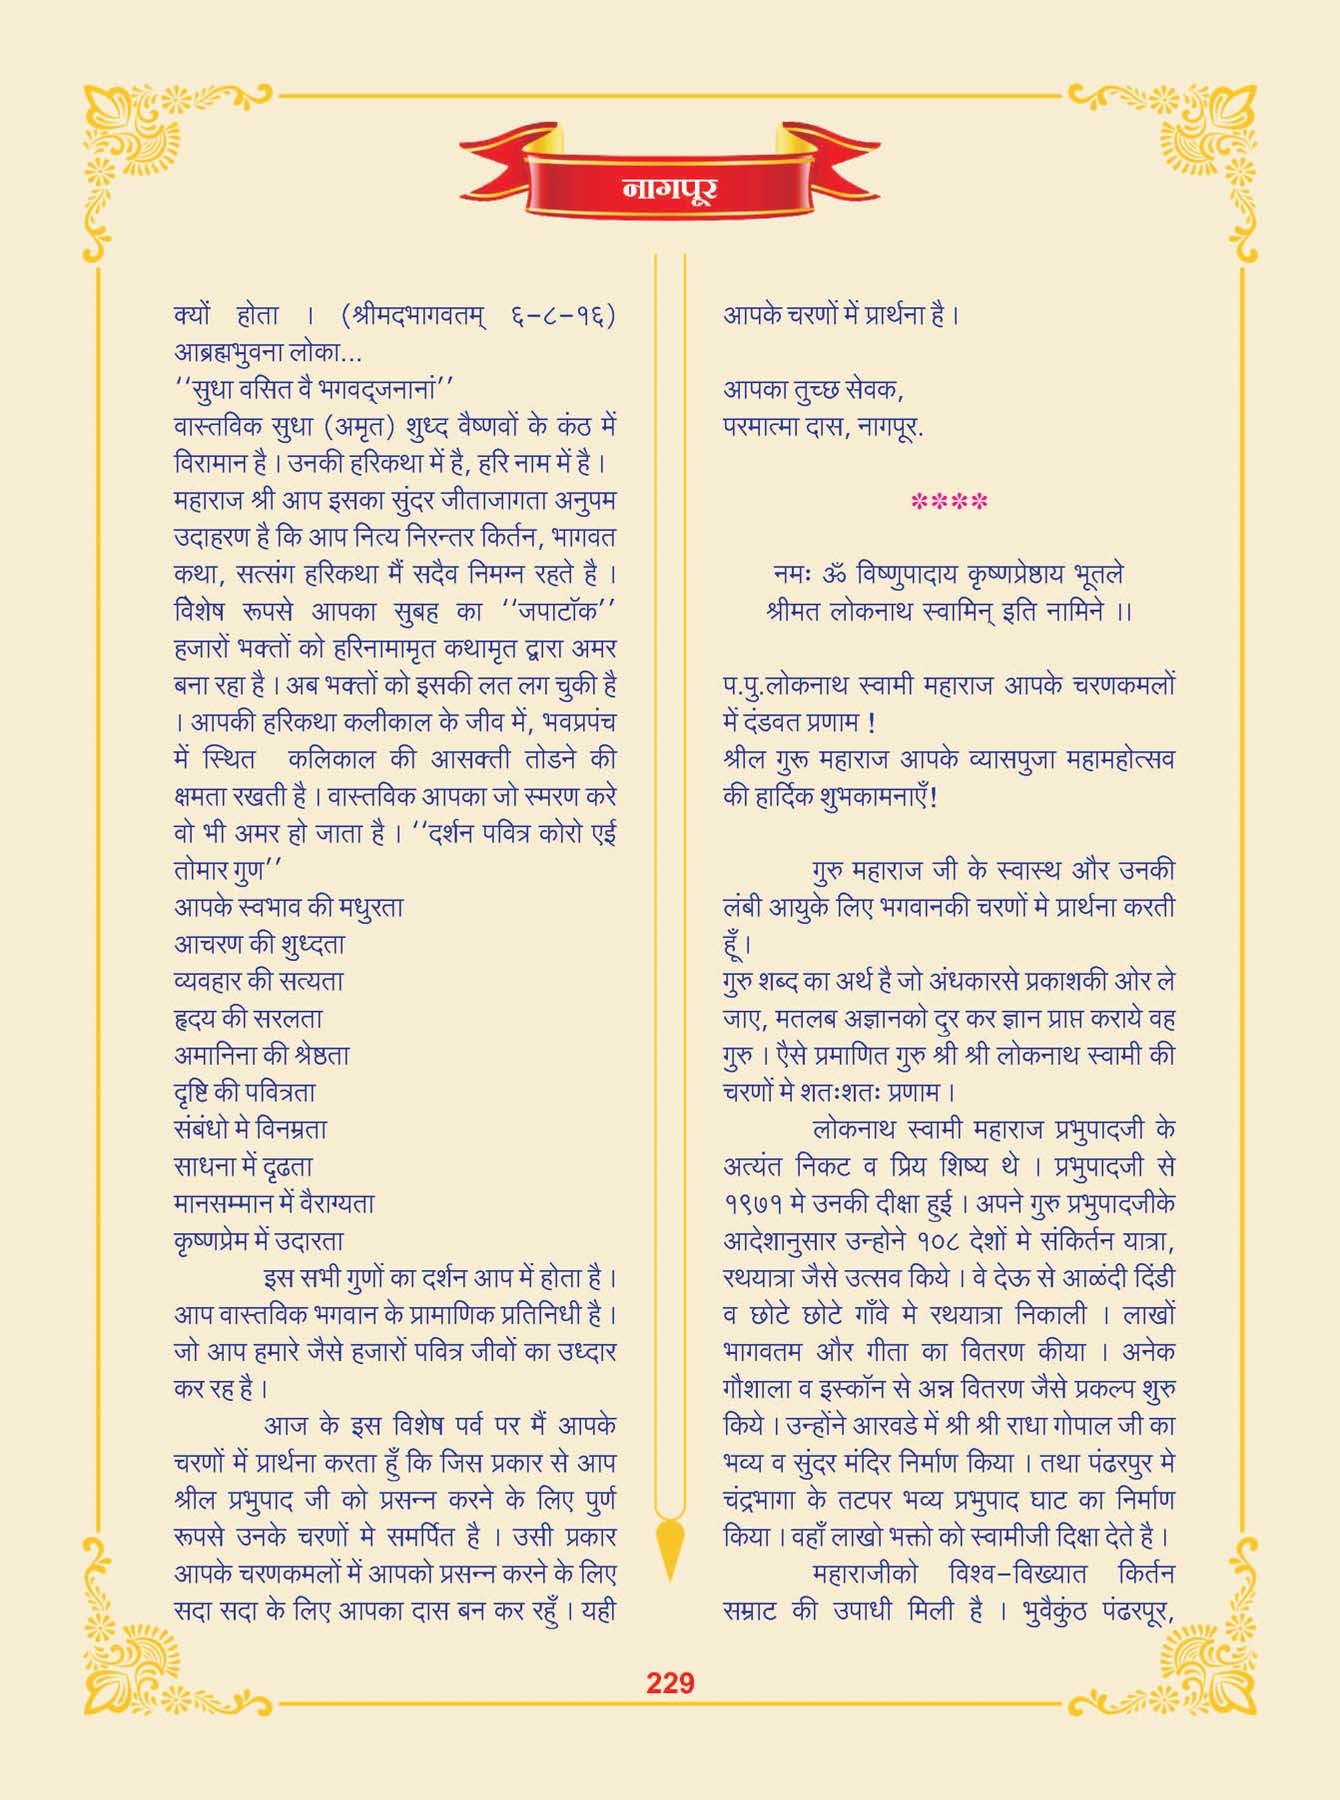 नागपूर
क्यों होता । (श्रीमदभागवतम् ६-८-१६)
आब्रह्मभुवना लोका...
‘‘सुधा वसित वै भगवद्‌जनानां’’
वास्तविक सुधा (अमृत) शुध्द वैष्णवों के कंठ में
विरामान है । उनकी हरिकथा में है, हरि नाम में है ।
महाराज श्री आप इसका सुंदर जीताजागता अनुपम
उदाहरण है कि आप नित्य निरन्तर किर्तन, भागवत
कथा, सत्संग हरिकथा मैं सदैव निमग्न रहते है ।
विेशेष रूपसे आपका सुबह का ‘‘जपाटॉक’’
हजारों भक्तों को हरिनामामृत कथामृत द्वारा अमर
बना रहा है । अब भक्तों को इसकी लत लग चुकी है
। आपकी हरिकथा कलीकाल के जीव में, भवप्रपंच
में स्थित कलिकाल की आसक्ती तोडने की
क्षमता रखती है । वास्तविक आपका जो स्मरण करे
वो भी अमर हो जाता है । ‘‘दर्शन पवित्र कोरो एई
तोमार गुण’’
आपके स्वभाव की मधुरता
आचरण की शुध्दता
व्यवहार की सत्यता
हृदय की सरलता
अमानिना की श्रेष्ठता
दृष्टि की पवित्रता
संबंधो मे विनम्रता
साधना में दृढता
मानसम्मान में वैराग्यता
कृष्णप्रेम में उदारता
इस सभी गुणों का दर्शन आप में होता है ।
आप वास्तविक भगवान के प्रामाणिक प्रतिनिधी है ।
जो आप हमारे जैसे हजारों पवित्र जीवों का उध्दार
कर रह है ।
आज के इस विशेष पर्व पर मैं आपके
चरणों में प्रार्थना करता हुँ कि जिस प्रकार से आप
श्रील प्रभुपाद जी को प्रसन्न करने के लिए पुर्ण
रूपसे उनके चरणों मे समर्पित है । उसी प्रकार
आपके चरणकमलों में आपको प्रसन्न करने के लिए
सदा सदा के लिए आपका दास बन कर रहुँ । यही
आपके चरणों में प्रार्थना है ।
आपका तुच्छ सेवक,
परमात्मा दास, नागपूर.
****
नमः ॐ विष्णुपादाय कृष्णप्रेष्ठाय भूतले
श्रीमत लोकनाथ स्वामिन् इति नामिने ।।
प.पु.लोकनाथ स्वामी महाराज आपके चरणकमलों
में दंडवत प्रणाम !
श्रील गुरू महाराज आपके व्यासपुजा महामहोत्सव
की हार्दिक शुभकामनाएँ!
गुरु महाराज जी के स्वास्थ और उनकी
लंबी आयुके लिए भगवानकी चरणों मे प्रार्थना करती
हूँ ।
गुरु शब्द का अर्थ है जो अंधकारसे प्रकाशकी ओर ले
जाए, मतलब अज्ञानको दुर कर ज्ञान प्राप्त कराये वह
गुरु । एैसे प्रमाणित गुरु श्री श्री लोकनाथ स्वामी की
चरणों मे शतःशतः प्रणाम ।
लोकनाथ स्वामी महाराज प्रभुपादजी के
अत्यंत निकट व प्रिय शिष्य थे । प्रभुपादजी से
१९७१ मे उनकी दीक्षा हुई । अपने गुरु प्रभुपादजीके
आदेशानुसार उन्होने १०८ देशों मे संकिर्तन यात्रा,
रथयात्रा जैसे उत्सव किये । वे देऊ से आळंदी दिंडी
व छोटे छोटे गाँवे मे रथयात्रा निकाली । लाखों
भागवतम और गीता का वितरण कीया । अनेक
गौशाला व इस्कॉन से अन्न वितरण जैसे प्रकल्प शुरु
किये । उन्होंने आरवडे में श्री श्री राधा गोपाल जी का
भव्य व सुंदर मंदिर निर्माण किया । तथा पंढरपुर मे
चंद्रभागा के तटपर भव्य प्रभुपाद घाट का निर्माण
किया । वहाँ लाखो भक्तो को स्वामीजी दिक्षा देते है ।
महाराजीको विश्व-विख्यात किर्तन
सम्राट की उपाधी मिली है । भुवैकुंठ पंढरपूर,
229